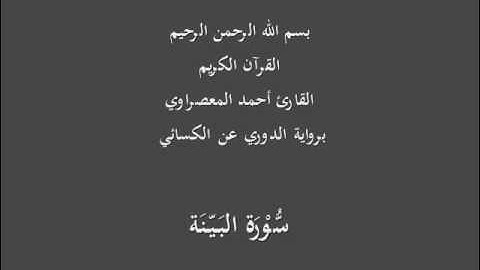 بسم الله الرحمن الرحيم
القرآن الكريم
القارئ أحمد المعصراوي
برواية الدوري عن الكسائي
سُّوْرَة البَيّنَة